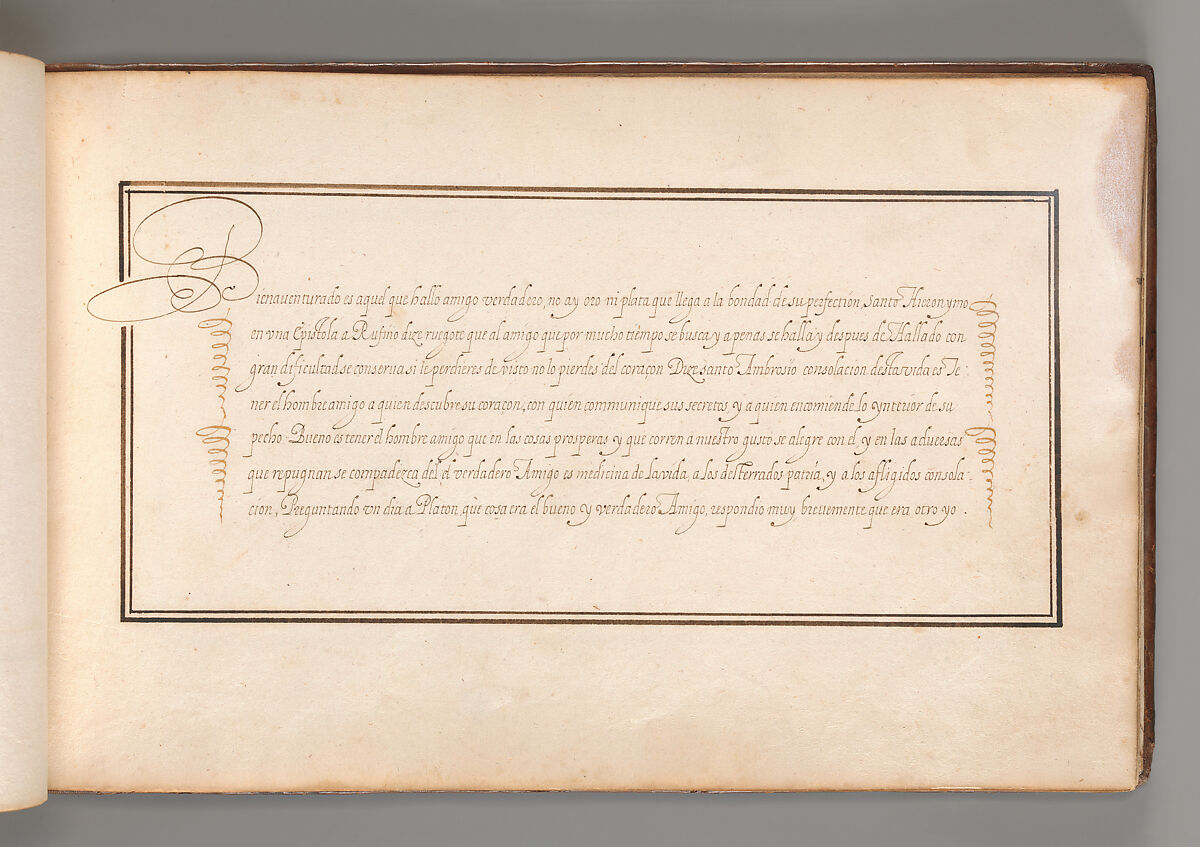 Bienauenturado es aquel que hallo amigo verdadero, no ay oro ni plata que llega a la bondad de su perfection, santo Hieronymo
en vna Epistola a Rufino dize ruegote que al amigo que por mucho tiempo se busca y apenas se halla y despues de Hallado con
gran dificultad se conserua si le perdieres de visto no lo pierdes del coraçon Dize santo Ambrosio consolacion desta vida es Te:
ner el hombre amigo a quien descubre su coraçon, con quien communique sus secretos, y a quien encomiende lo ynterior de su
pecho. Bueno es tener el hombre amigo que en las cosas prosperas y que corren a nuestro gusto se alegre con el, y en las aduersas
que repugnan se compadezca del el verdadero Amigo es medicina de la vida, a los desterrados patria, y a los afligidos consola-
cion, Preguntando vn dia a Platon, que cosa era el bueno y verdadero Amigo, respondio muy breuemente que era otro yo.